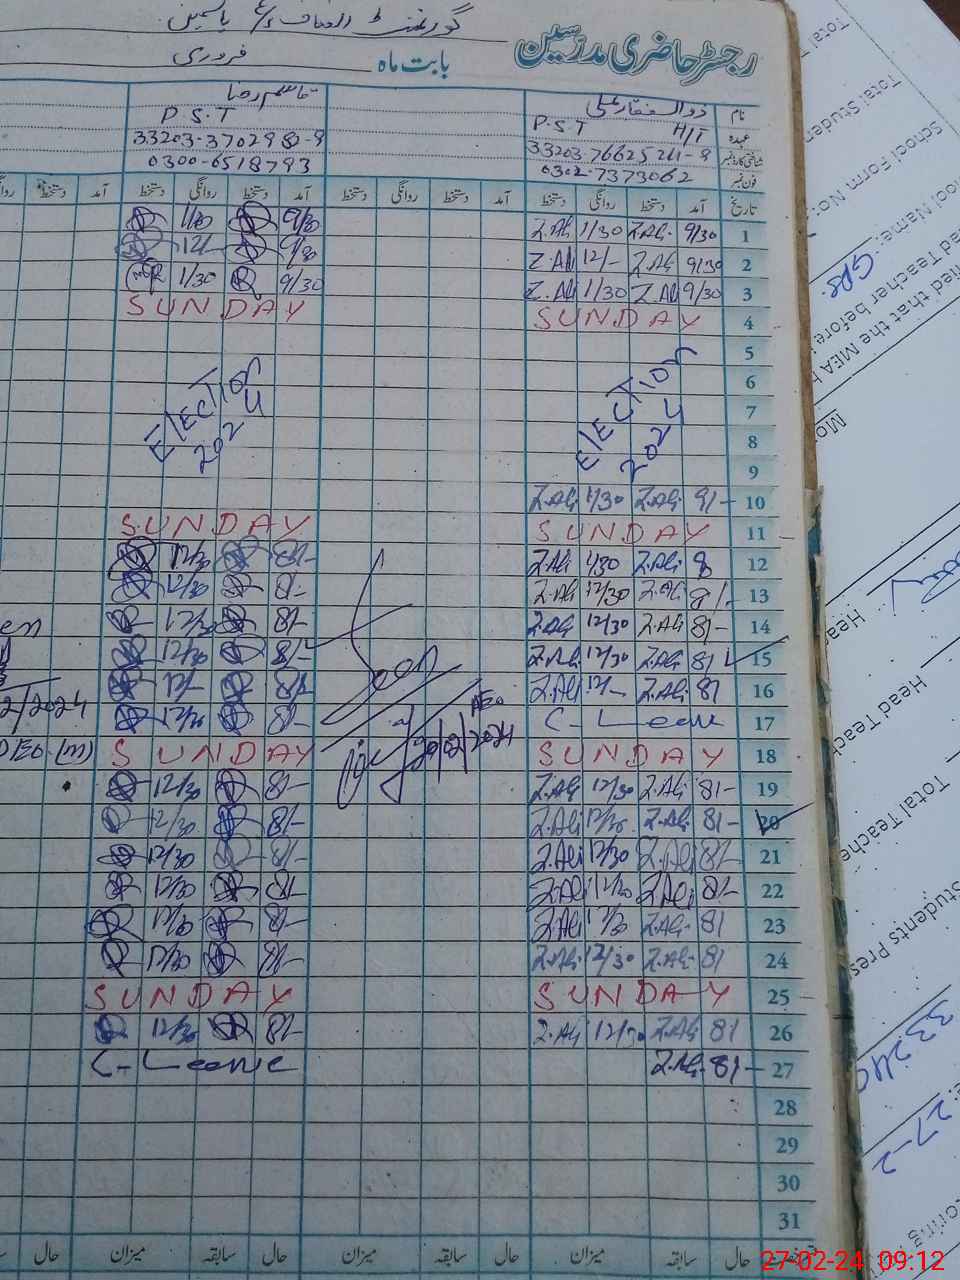 گورنمنٹ
رجسٹر حاضری مدرسین
بابت ماہ فروری
نام ذوالفقار علی قاسم رضا
عہدہ H/T P.S.T P.S.T
شناختی کارڈ نمبر
فون نمبر 0302-7373062 0300-6518793
تاریخ آمد دستخط روانگی دستخط آمد دستخط روانگی دستخط آمد دستخط روانگی دستخط آمد دستخط
1 9/30 Z.Ali 1/30 Z.Ali 9/30 1/30
2 9/30 Z.Ali 12/- Z.Ali 9/30 12/-
3 9/30 Z.Ali 1/30 Z.Ali 9/30 1/30
4 SUNDAY SUNDAY
5
6
7 ELECTION 2024 ELECTION 2024
8
9
10 9/- Z.Ali 1/30 Z.Ali
11 SUNDAY SUNDAY
12 8 Z.Ali 1/30 Z.Ali 8/- 12/30
13 8/- Z.Ali 12/30 Z.Ali 8/- 12/30
14 8/- Z.Ali 12/30 Z.Ali 8/- 12/30
15 8/ Z.Ali 12/30 Z.Ali 8/- 12/30
16 8/ Z.Ali 12/- Z.Ali 8/- 12/-
17 C-Leave 8/- 12/30
18 SUNDAY SUNDAY
Seen
AEO
20/02/2024
2/2024
DEO (M)
19 8/- Z.Ali 12/30 Z.Ali 8/- 12/30
20 8/- Z.Ali 12/30 Z.Ali 8/- 12/30
21 8/- Z.Ali 12/30 Z.Ali 8/- 12/30
22 8/- Z.Ali 12/30 Z.Ali 8/- 12/30
23 8/ Z.Ali 12/30 Z.Ali 8/- 12/30
24 8/ Z.Ali 12/30 Z.Ali 8/- 12/30
25 SUNDAY SUNDAY
26 8/ Z.Ali 12/30 Z.Ali 8/- 12/30
27 8/- Z.Ali C-Leave
28
29
30
31
حال سابقہ میزان حال سابقہ میزان حال سابقہ میزان حال
Total Studen
School Form No:
ool Name: GPS
ad Teacher before
fied that the MEA
Head Teach
Total Teache
Students Pres
27-2
oring
27-02-24 09:12